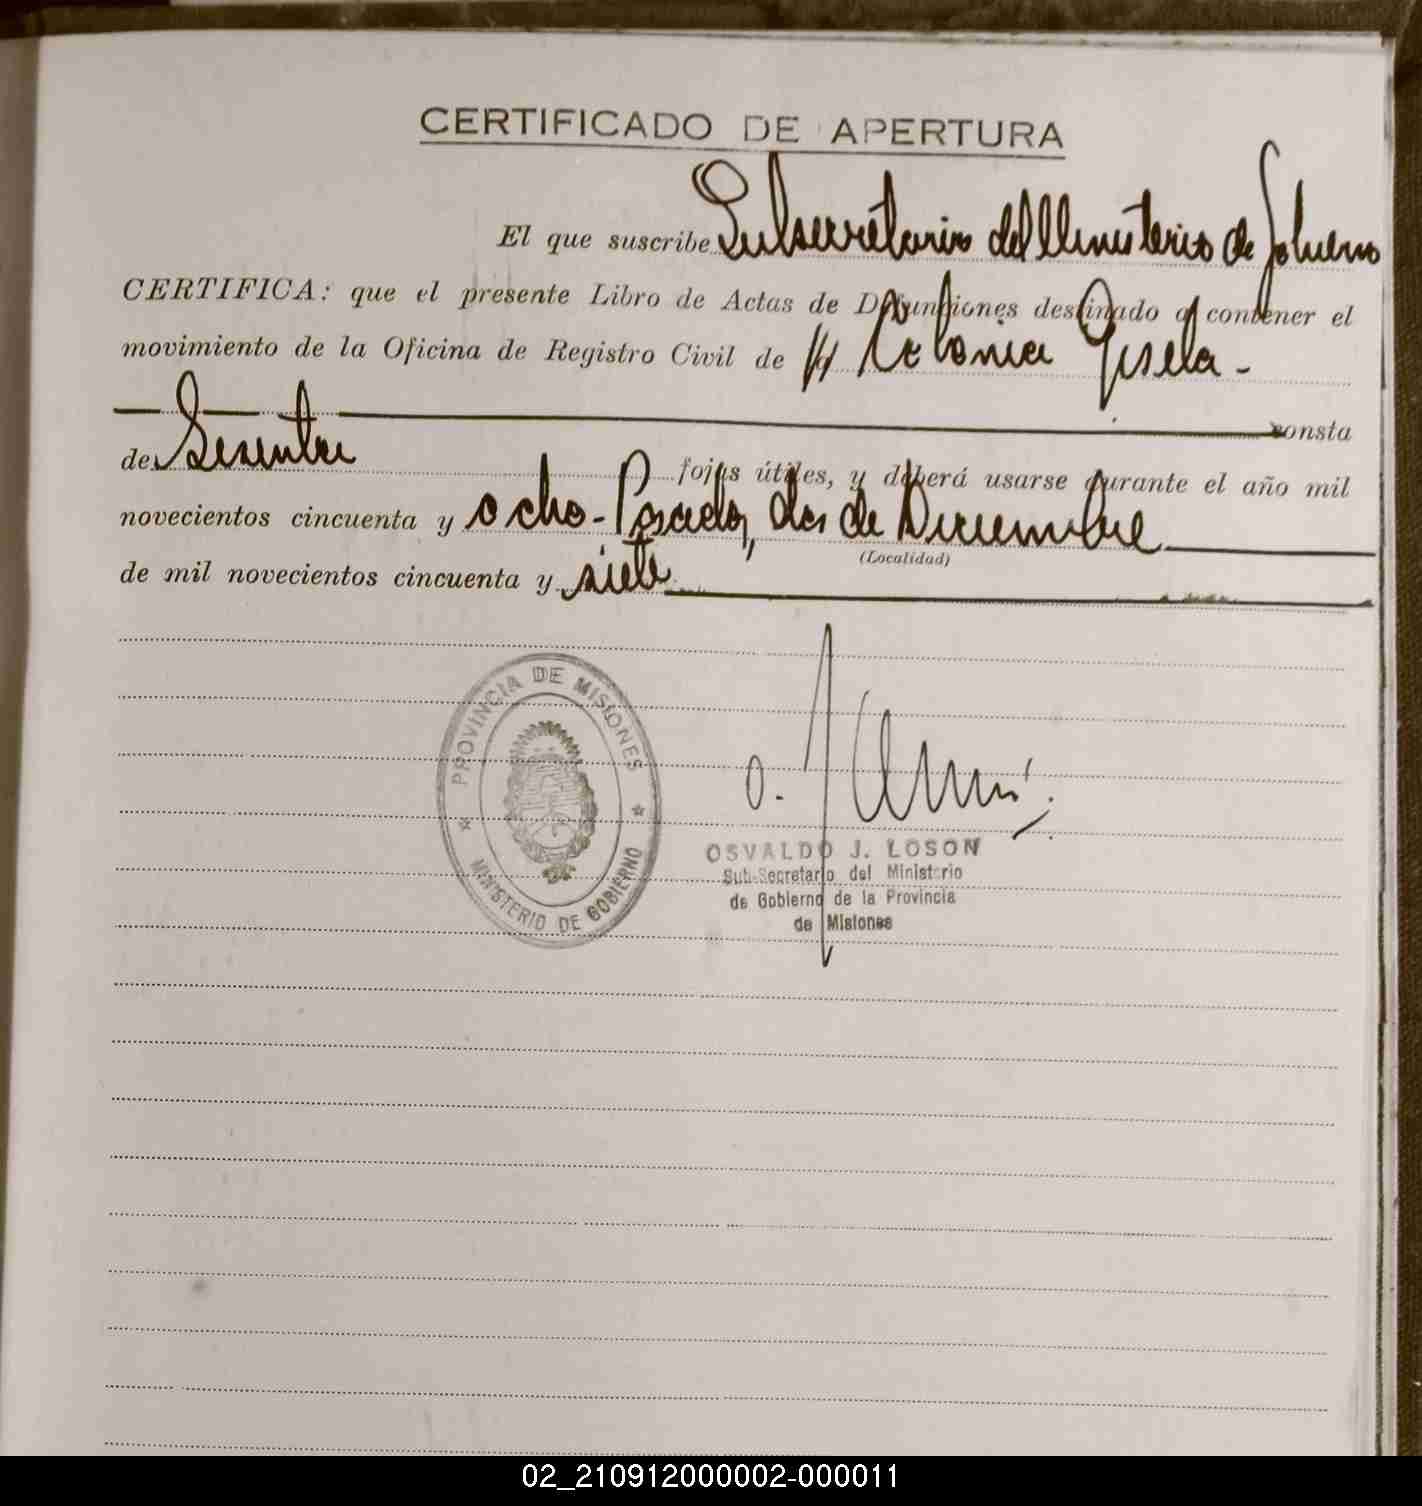 CERTIFICADO DE APERTURA
El que suscribe Subsecretario del Ministerio de Gobierno
CERTIFICA: que el presente Libro de Actas de Defunciones destinado a contener el
movimiento de la Oficina de Registro Civil de Colonia Gisela -
consta
de Sesenta fojas útiles, y deberá usarse durante el año mil
novecientos cincuenta y ocho - Posadas, dos de Diciembre
(Localidad)
de mil novecientos cincuenta y siete
PROVINCIA DE MISIONES
MINISTERIO DE GOBIERNO
OSVALDO J. LOSON
Sub-Secretario del Ministerio
de Gobierno de la Provincia
de Misiones
02_210912000002-000011